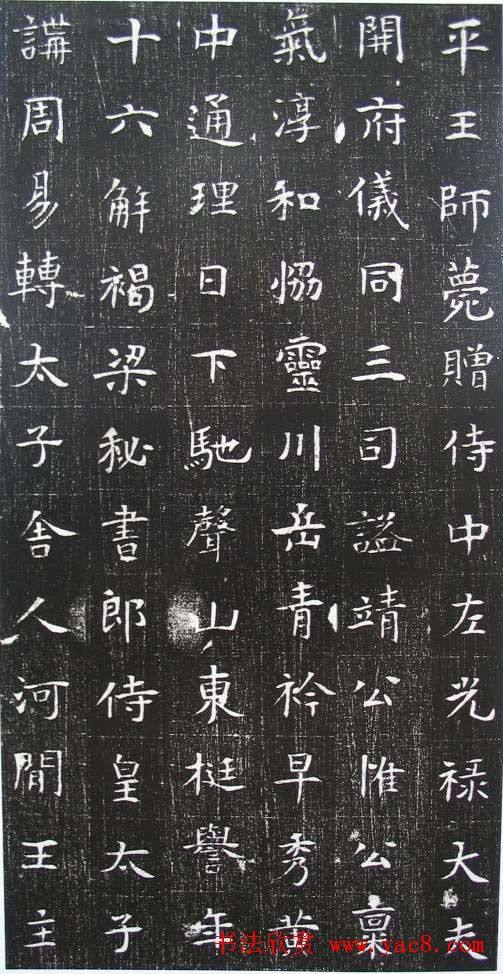 平王師薨贈侍中左光禄大夫
開府儀同三司謚靖公惟公稟
氣淳和恊靈川岳青衿早秀黃
中通理日下馳聲山東梃譽年
十六解褐梁秘書郎侍皇太子
講周易轉太子舍人河間王主
书法欣赏 www.yac8.com